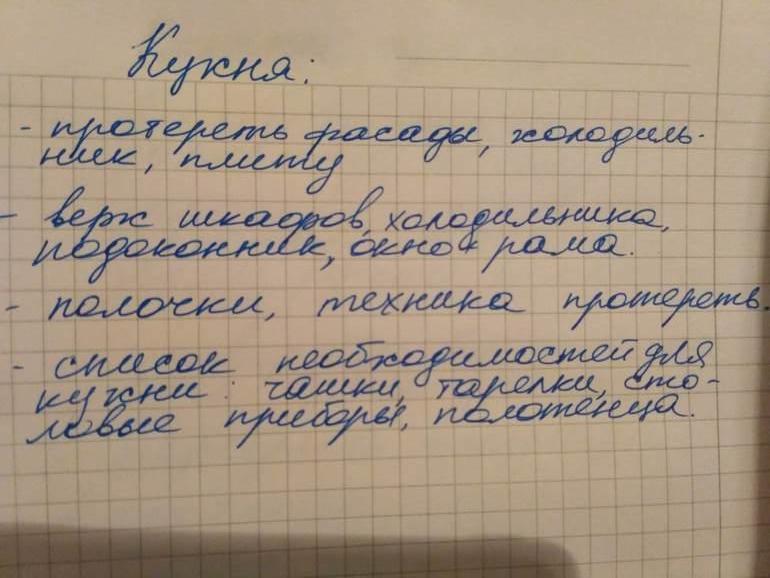 Кухня:
- протереть фасады, холодиль-
ник, плиту
- верх шкафов, холодильника,
подоконник, окно + рама.
- полочки, техника протереть.
- список необходимостей для
кухни: чашки, тарелки, сто-
ловые приборы, полотенца.